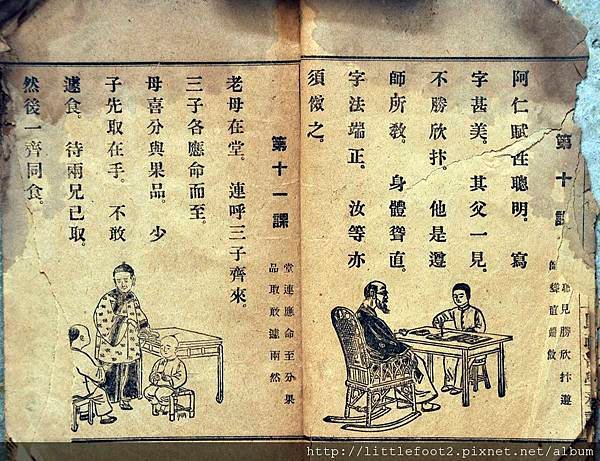 第十課
聰見勝欣抃遵
師聳直端傚
阿仁賦性聰明。寫
字甚美。其父一見。
不勝欣抃。他是遵
師所敎。身體聳直。
字法端正。汝等亦
須傚之。
第十一課
堂連應命至分果
品取敢遽兩然
老母在堂。連呼三子齊來。
三子各應命而至。
母喜分與果品。少
子先取在手。不敢
遽食。待兩兄已取。
然後一齊同食。
http://littlefoot2.pixnet.net/album